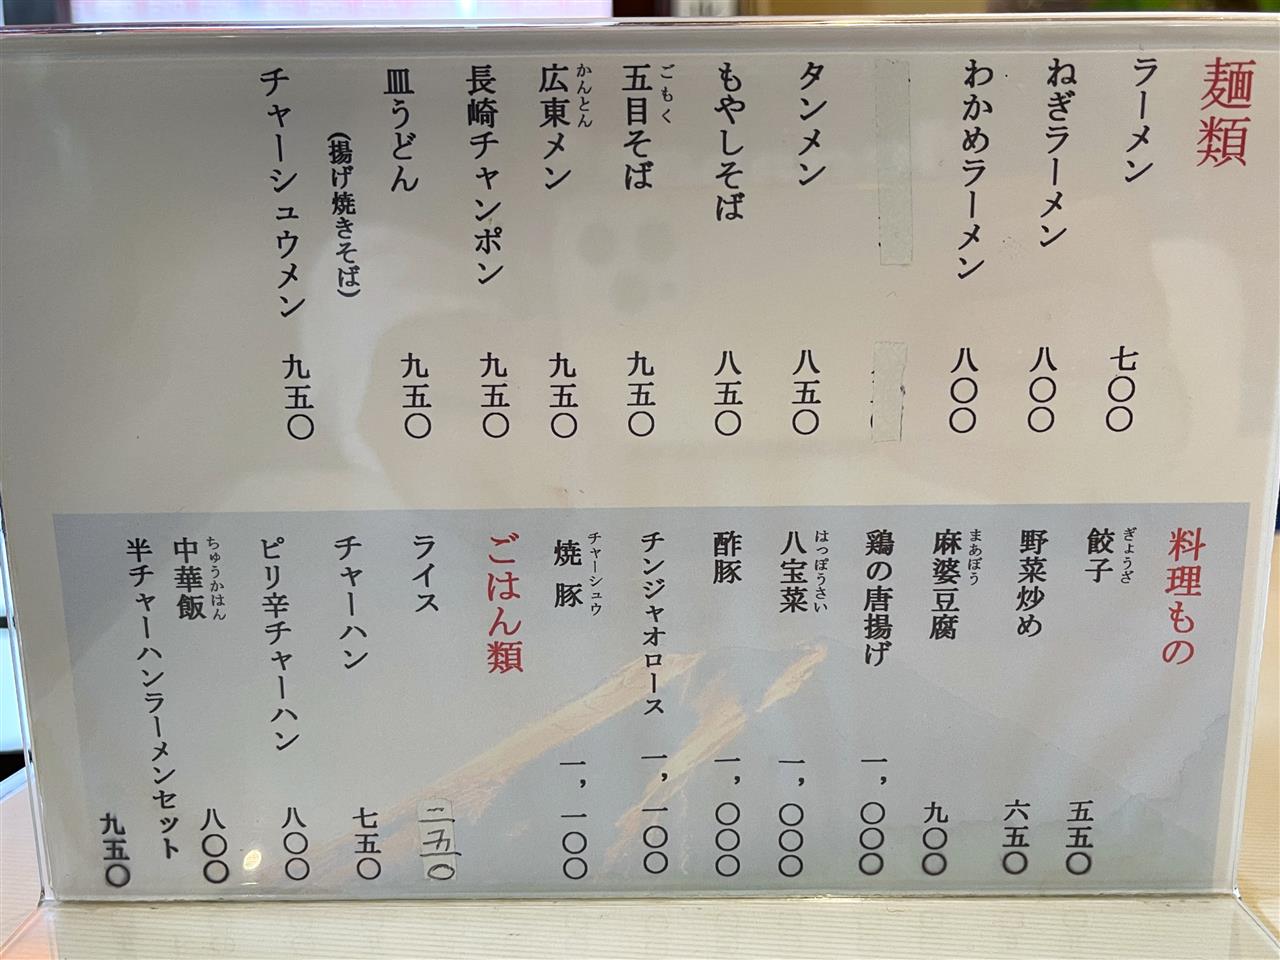 麺類
ラーメン 七〇〇
ねぎラーメン 八〇〇
わかめラーメン 八〇〇
タンメン 八五〇
もやしそば 八五〇
ごもく
五目そば 九五〇
かんとん
広東メン 九五〇
長崎チャンポン 九五〇
皿うどん 九五〇
(揚げ焼きそば)
チャーシュウメン 九五〇
料理もの
ぎょうざ
餃子 五五〇
野菜炒め 六五〇
まあぼう
麻婆豆腐 九〇〇
鶏の唐揚げ 一,〇〇〇
はっぽうさい
八宝菜 一,〇〇〇
酢豚 一,〇〇〇
チンジャオロース 一,一〇〇
チャーシュウ
焼豚 一,一〇〇
ごはん類
ライス 二五〇
チャーハン 七五〇
ピリ辛チャーハン 八〇〇
ちゅうかはん
中華飯 八〇〇
半チャーハンラーメンセット 九五〇